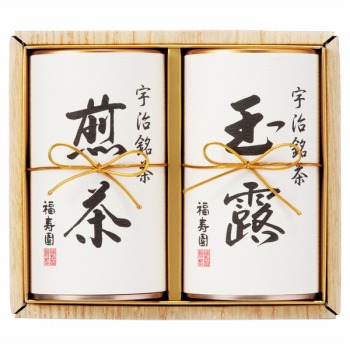 宇治銘茶
煎茶
福寿園
宇治銘茶
玉露
福寿園